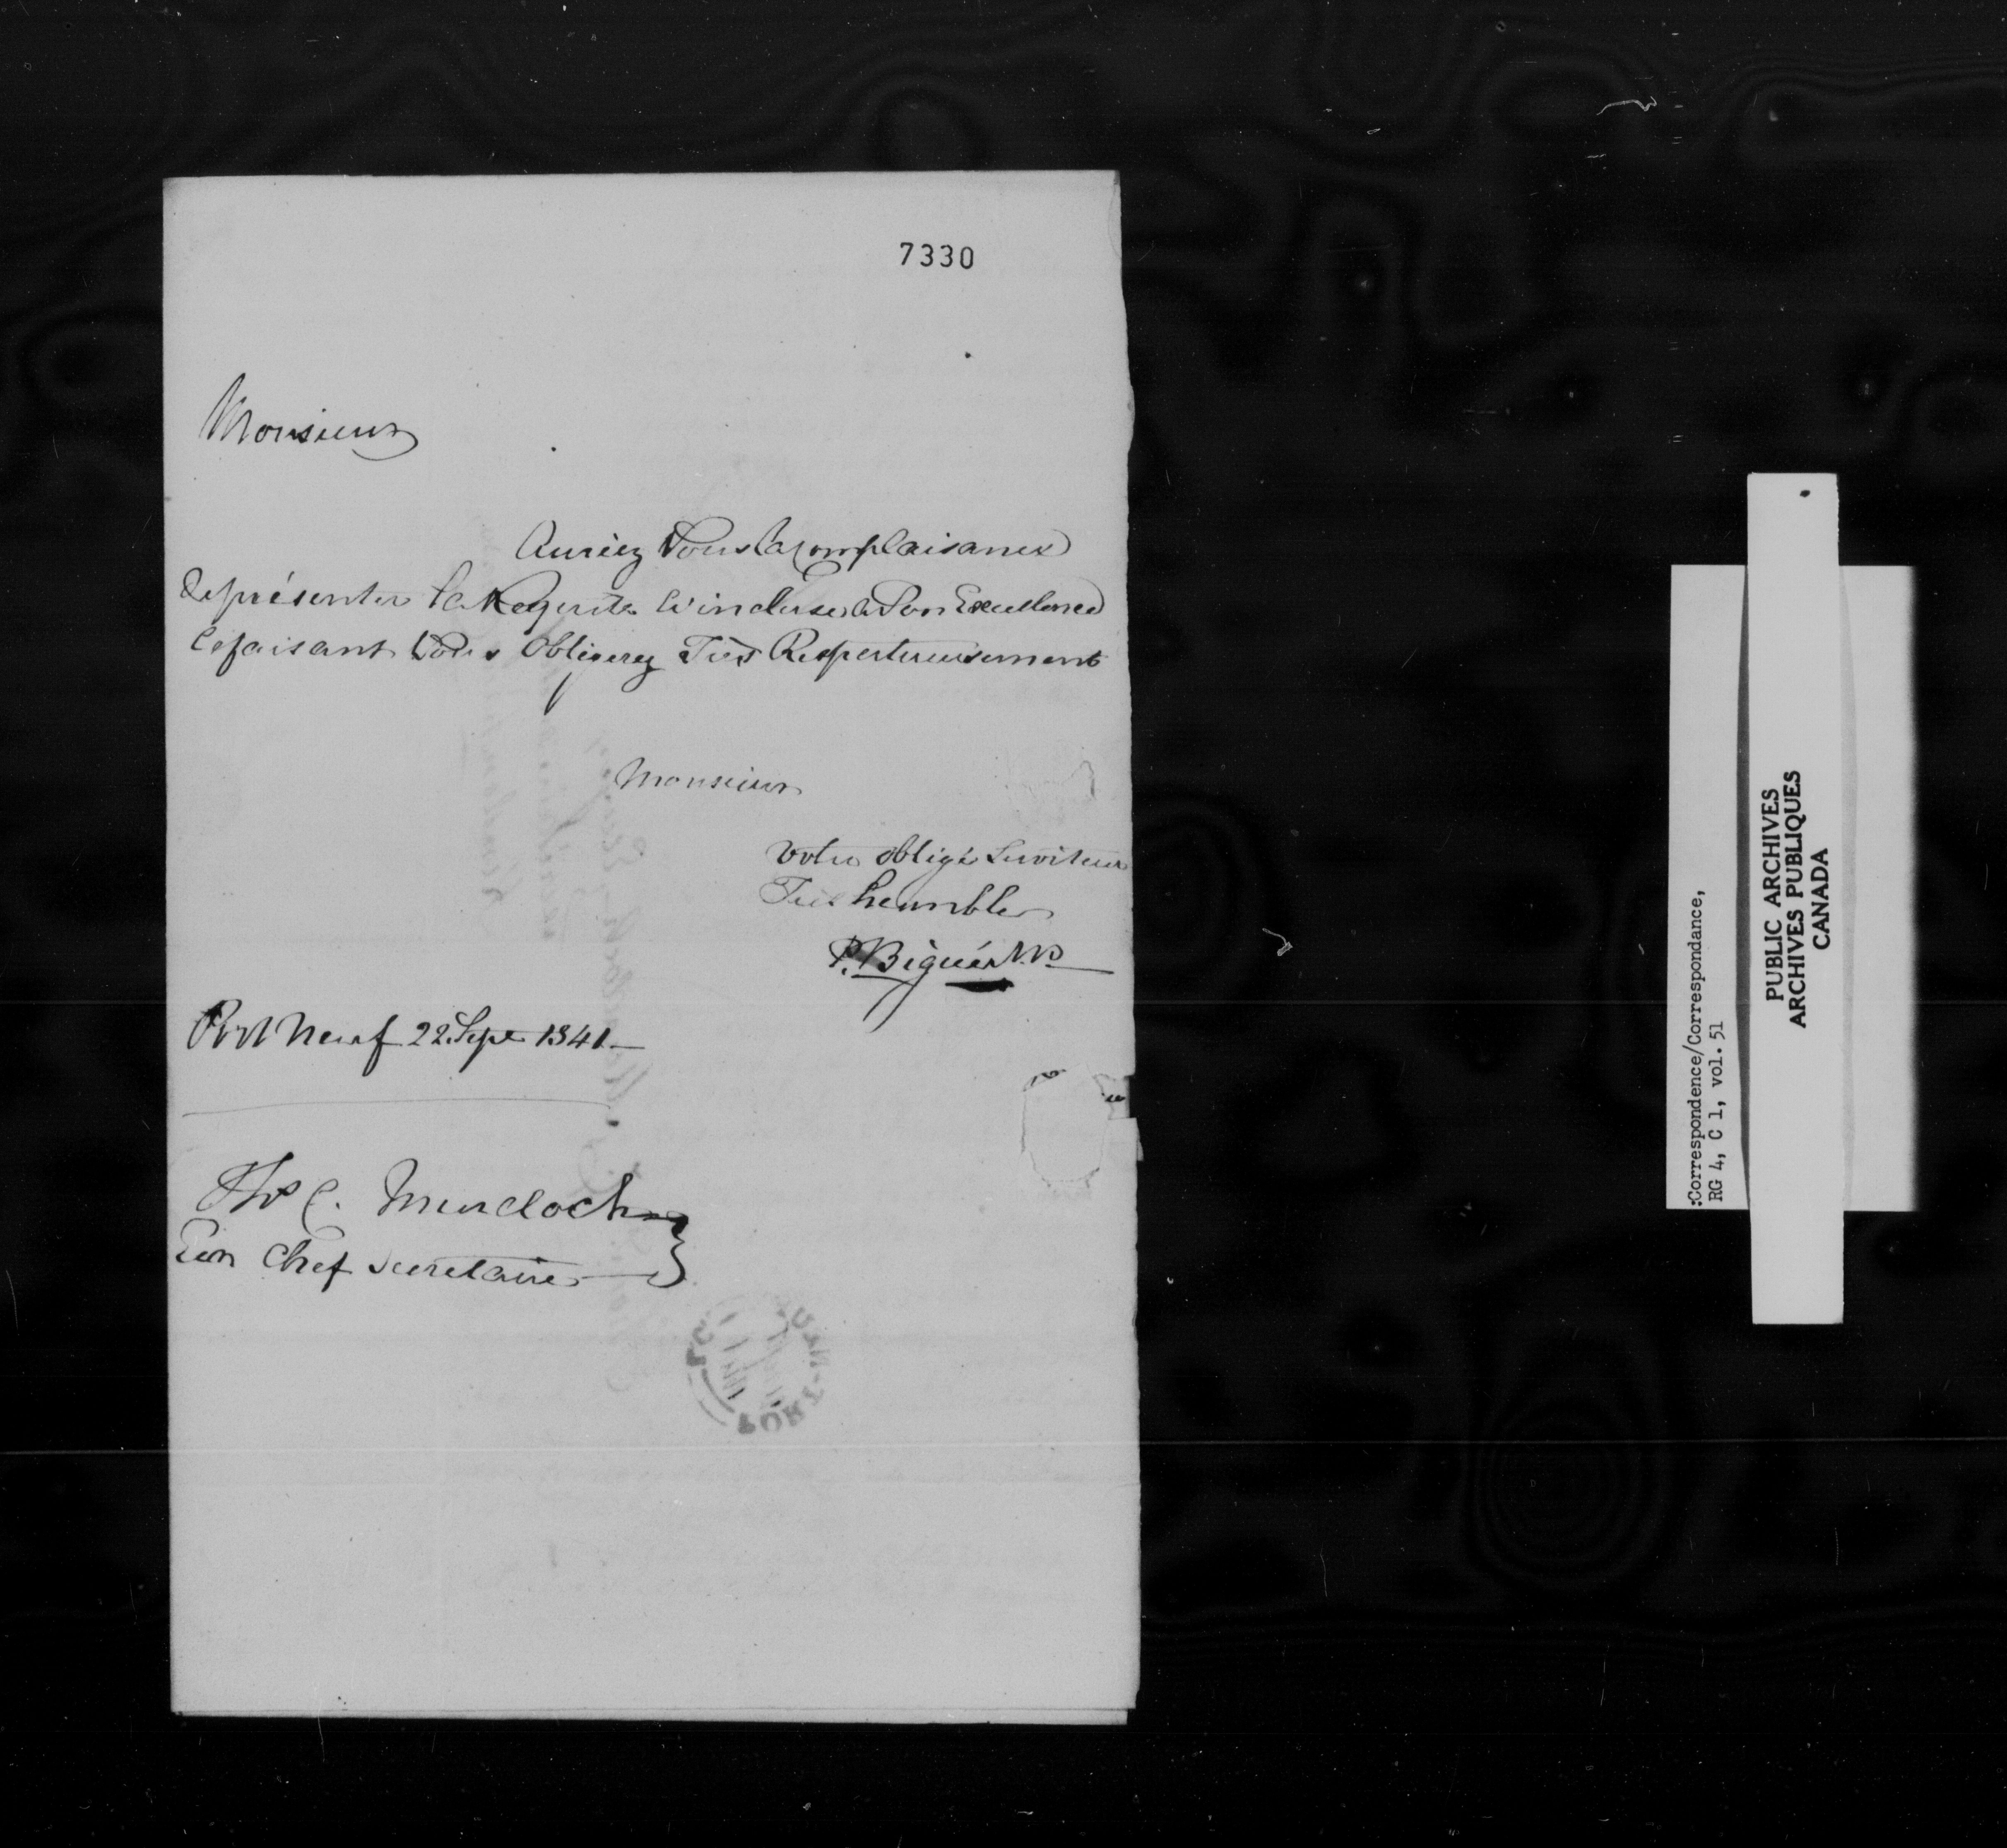 7330
Monsieur
Auriez Vous la Complaisance
de présenter la Requete ci incluse à Son Excellence
ce faisant Vous obligerez Très Respectueusement
Monsieur
Votre obligé Serviteur
Très heumble
P. Bigué
Port Neuf 22 Sept 1841
Thos C. Murdoch
Chef Secretaire
PORT
:Correspondence/Correspondance,
RG 4, C 1, vol. 51
PUBLIC ARCHIVES
ARCHIVES PUBLIQUES
CANADA